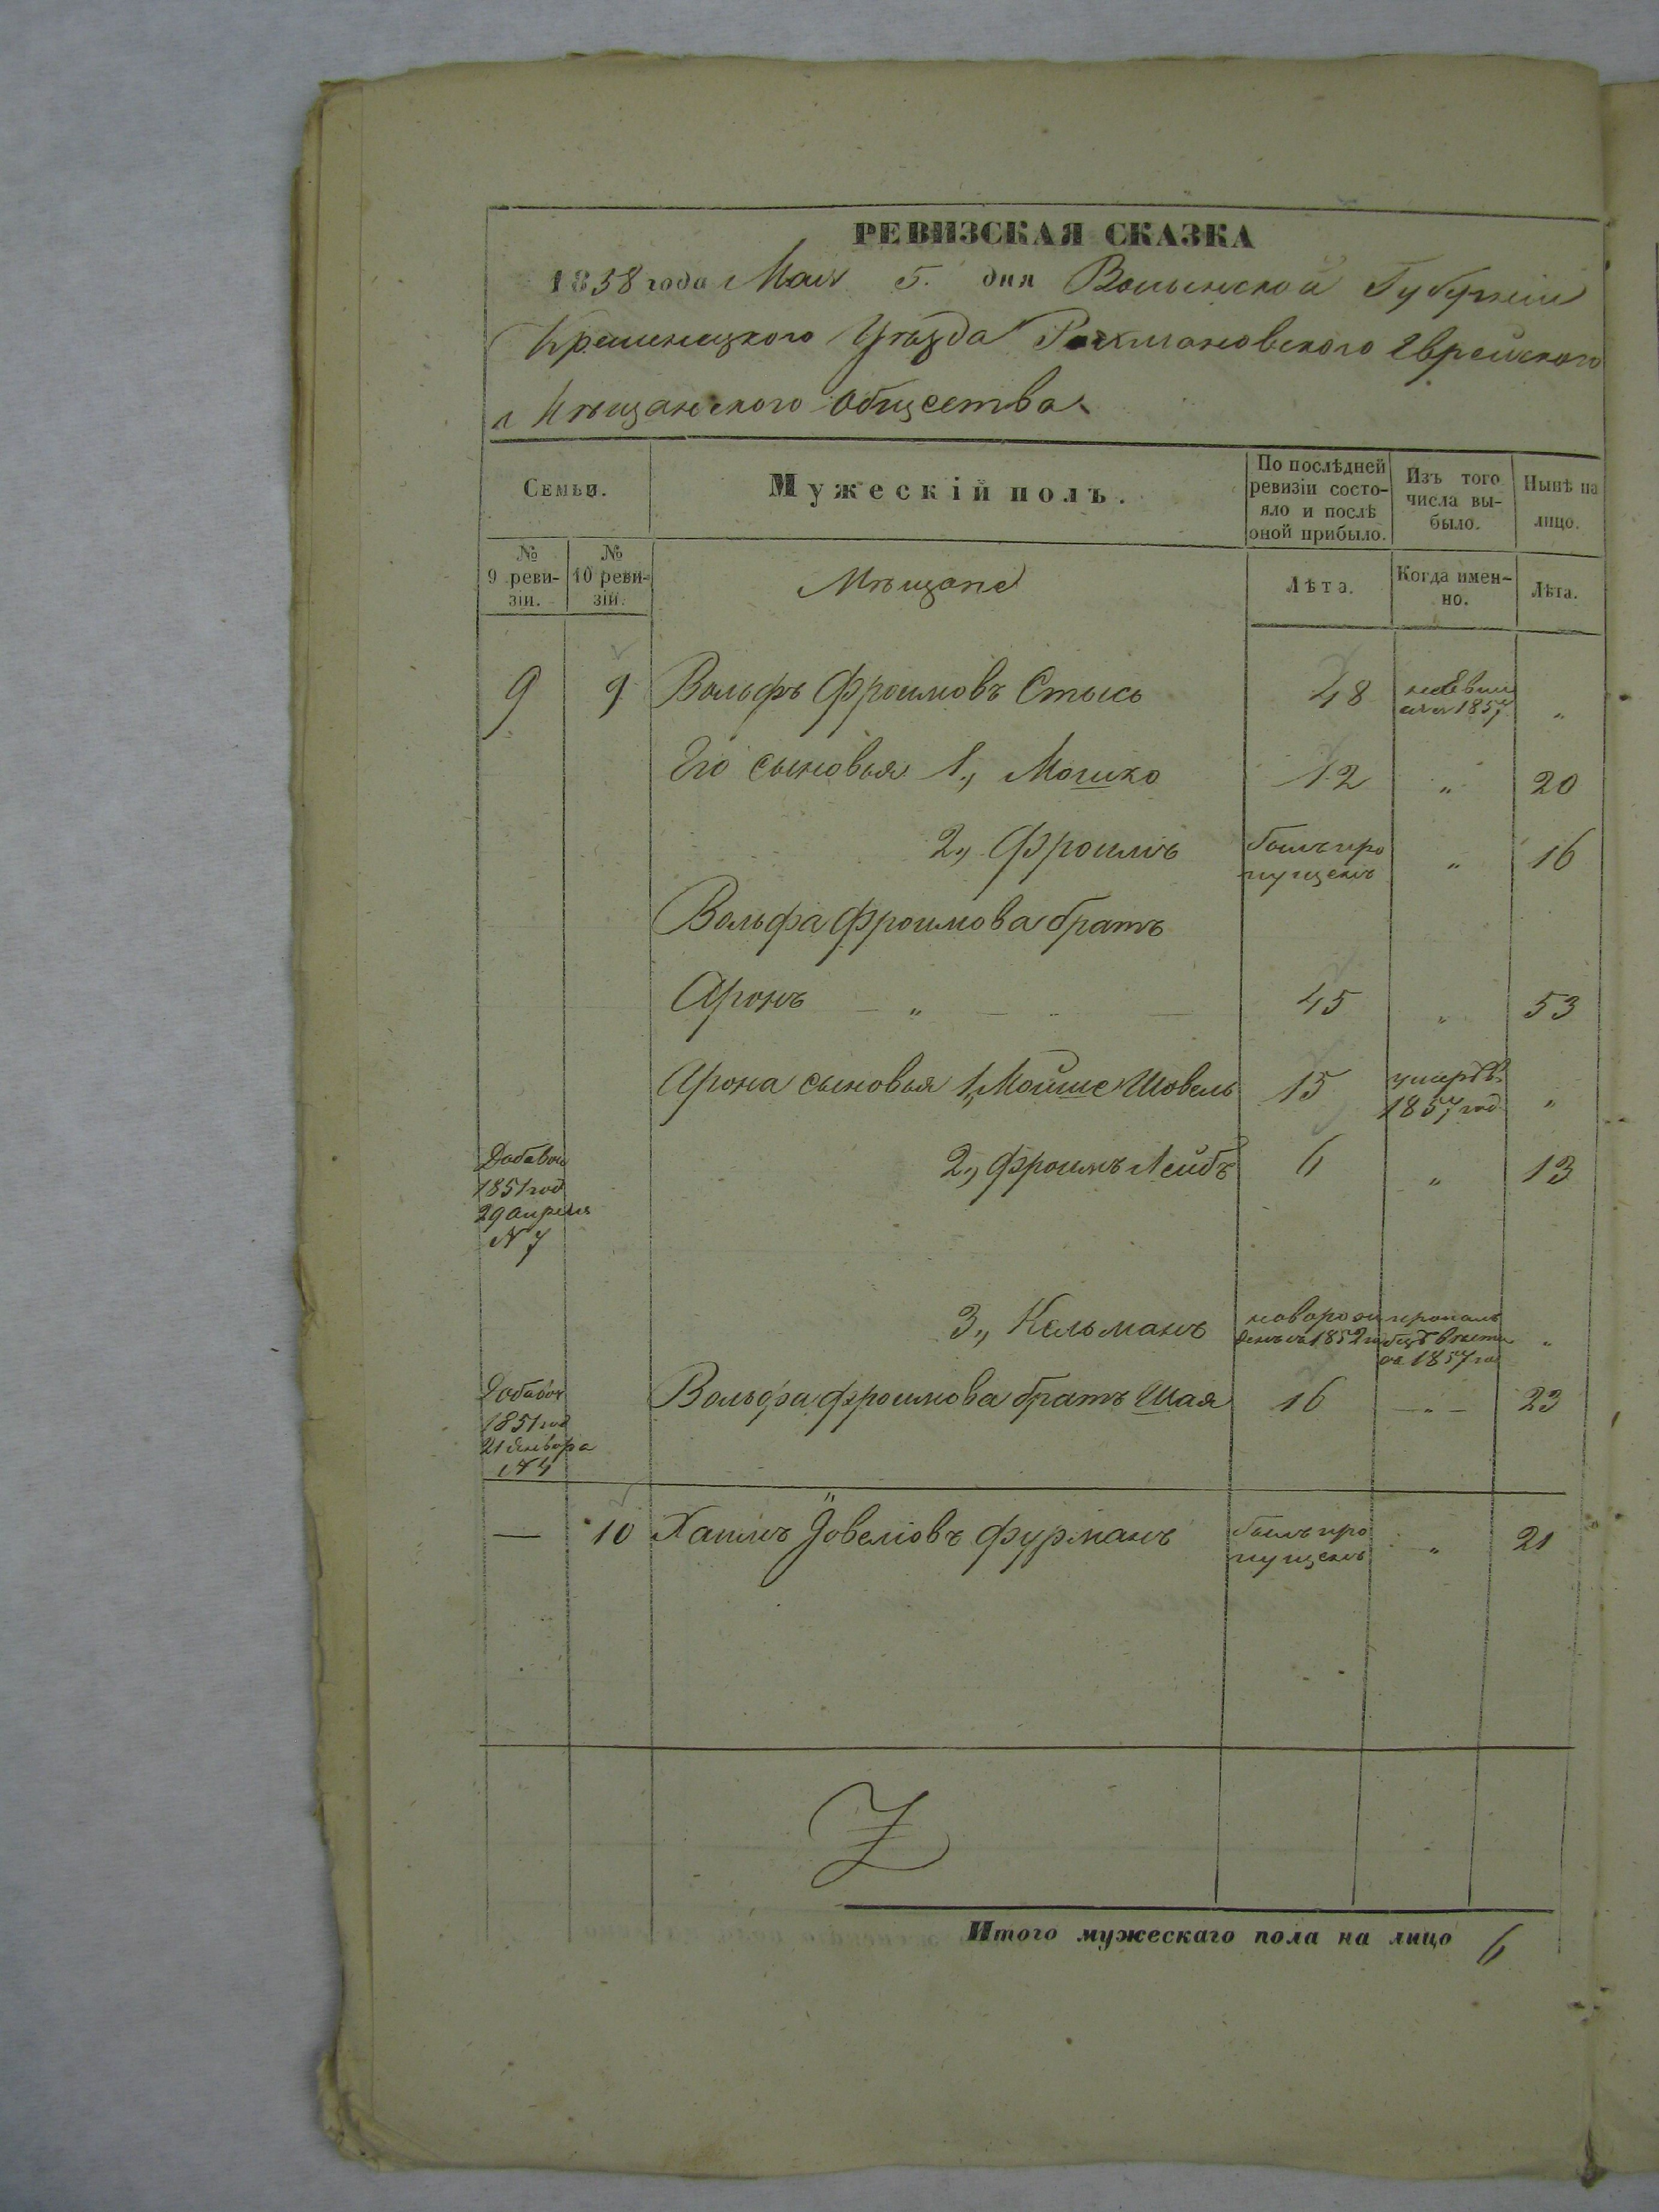 РЕВИЗСКАЯ СКАЗКА
1858 года Мая 5. дня Волынской Губерніи
Кременецкого Уѣзда Рахмановского Еврейского
Мѣщанского Общества
Семьи.
Мужескій полъ.
По послѣдней ревизіи состо-
яло и послѣ оной прибыло.
Изъ того числа вы-
было.
Нынѣ на лицо.
№ 9 реви-
зіи.
№ 10 реви-
зіи.
Мѣщане
Лѣта.
Когда имен-
но.
Лѣта.
9 9 Вольфъ Фроимовъ Стысь 48 1857 „
Его сыновья 1., Мошко 12 „ 20
2., Фроимъ былъ про
пущенъ „ 16
Вольфа Фроимова братъ
Аронъ — „ — 45 „ 53
Арона сыновья 1., Мойше Шовель 15 умеръ въ
1857 год „
Добавоч
1851 год
29 Апреля
№ 7
2., Фроимъ Лейбъ 6 „ 13
3., Кельманъ новорож
денъ въ 1852 го пропалъ
безъ вѣсти
1857 го „
Добавоч
1851 год
21 Января
№ 4
Вольфа Фроимова братъ Шая 16 — „ — 23
— 10 Хаимъ Іовеліовъ Фурманъ былъ про
пущенъ „ 21
Итого мужескаго пола на лицо 6